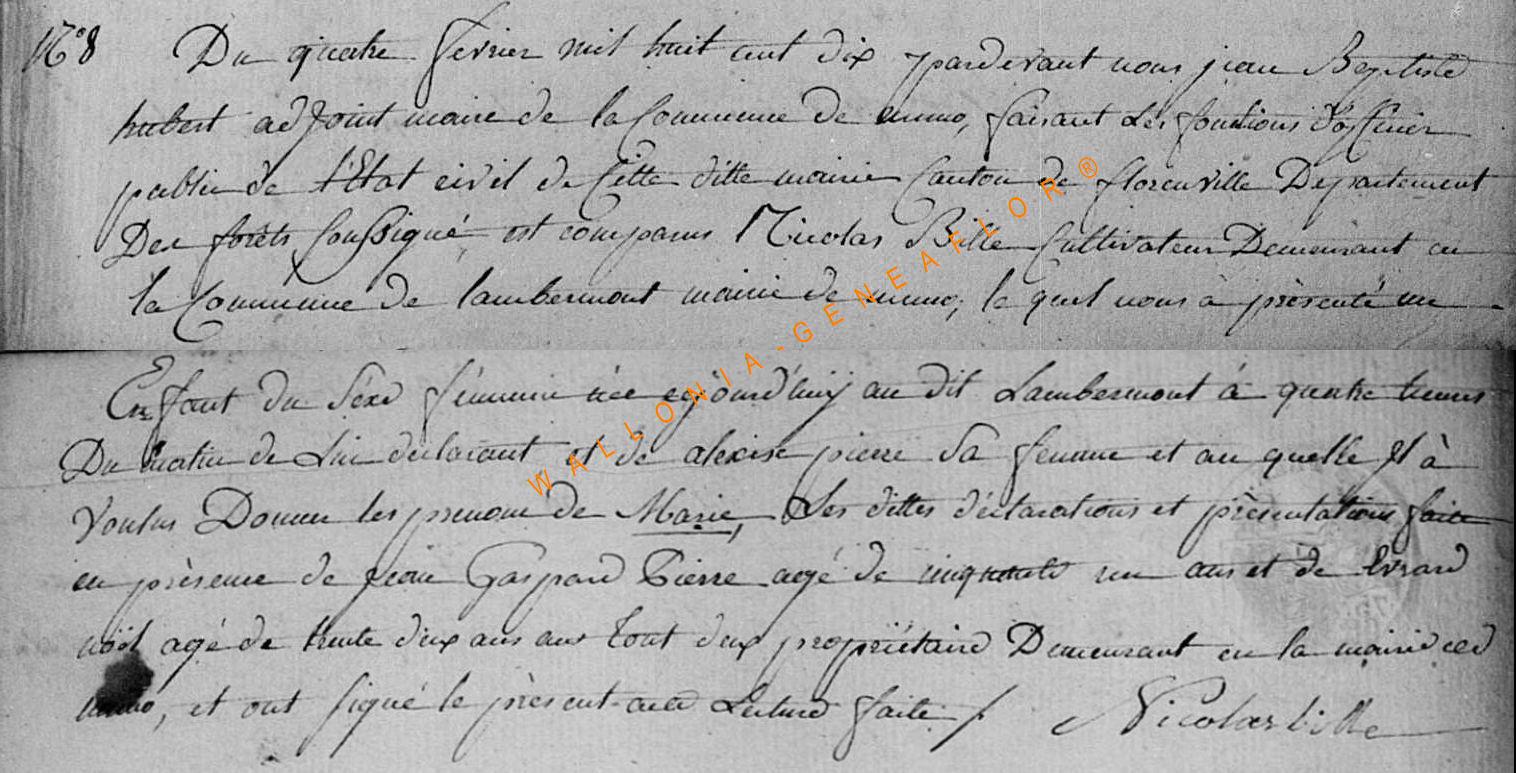 N°8 Du quatre fevrier mil huit cent dix pardevant nous jean Baptiste
hubert adjoint maire de la Commune de muno, faisant Les fonctions d'officier
public de l'Etat civil de Cette ditte mairie Canton de florenville Departement
Des forêts Soussigné, est comparus Nicolas Bille Cultivateur Demeurant en
la Commune de lambermont mairie de muno, le quel nous à présenté une
Enfant du Séxe féminin née aujourd'huij au dit Lambermont à quatre heures
Du matin de Lui déclarant et de alexise pierre Sa femme et au quelle Il à
Voulus Donner les prenom de Marie, Les dittes déclarations et présentations faite
en présence de jean Gaspard Pierre agé de cinquante un ans et de Evrard
noël agé de trente deux ans aus tout deux propriétaire Demeurant en la mairie de
muno, et ont signé le présent acte Lecture faite /. Nicolas bille
WALLONIA-GENEAFLOR®